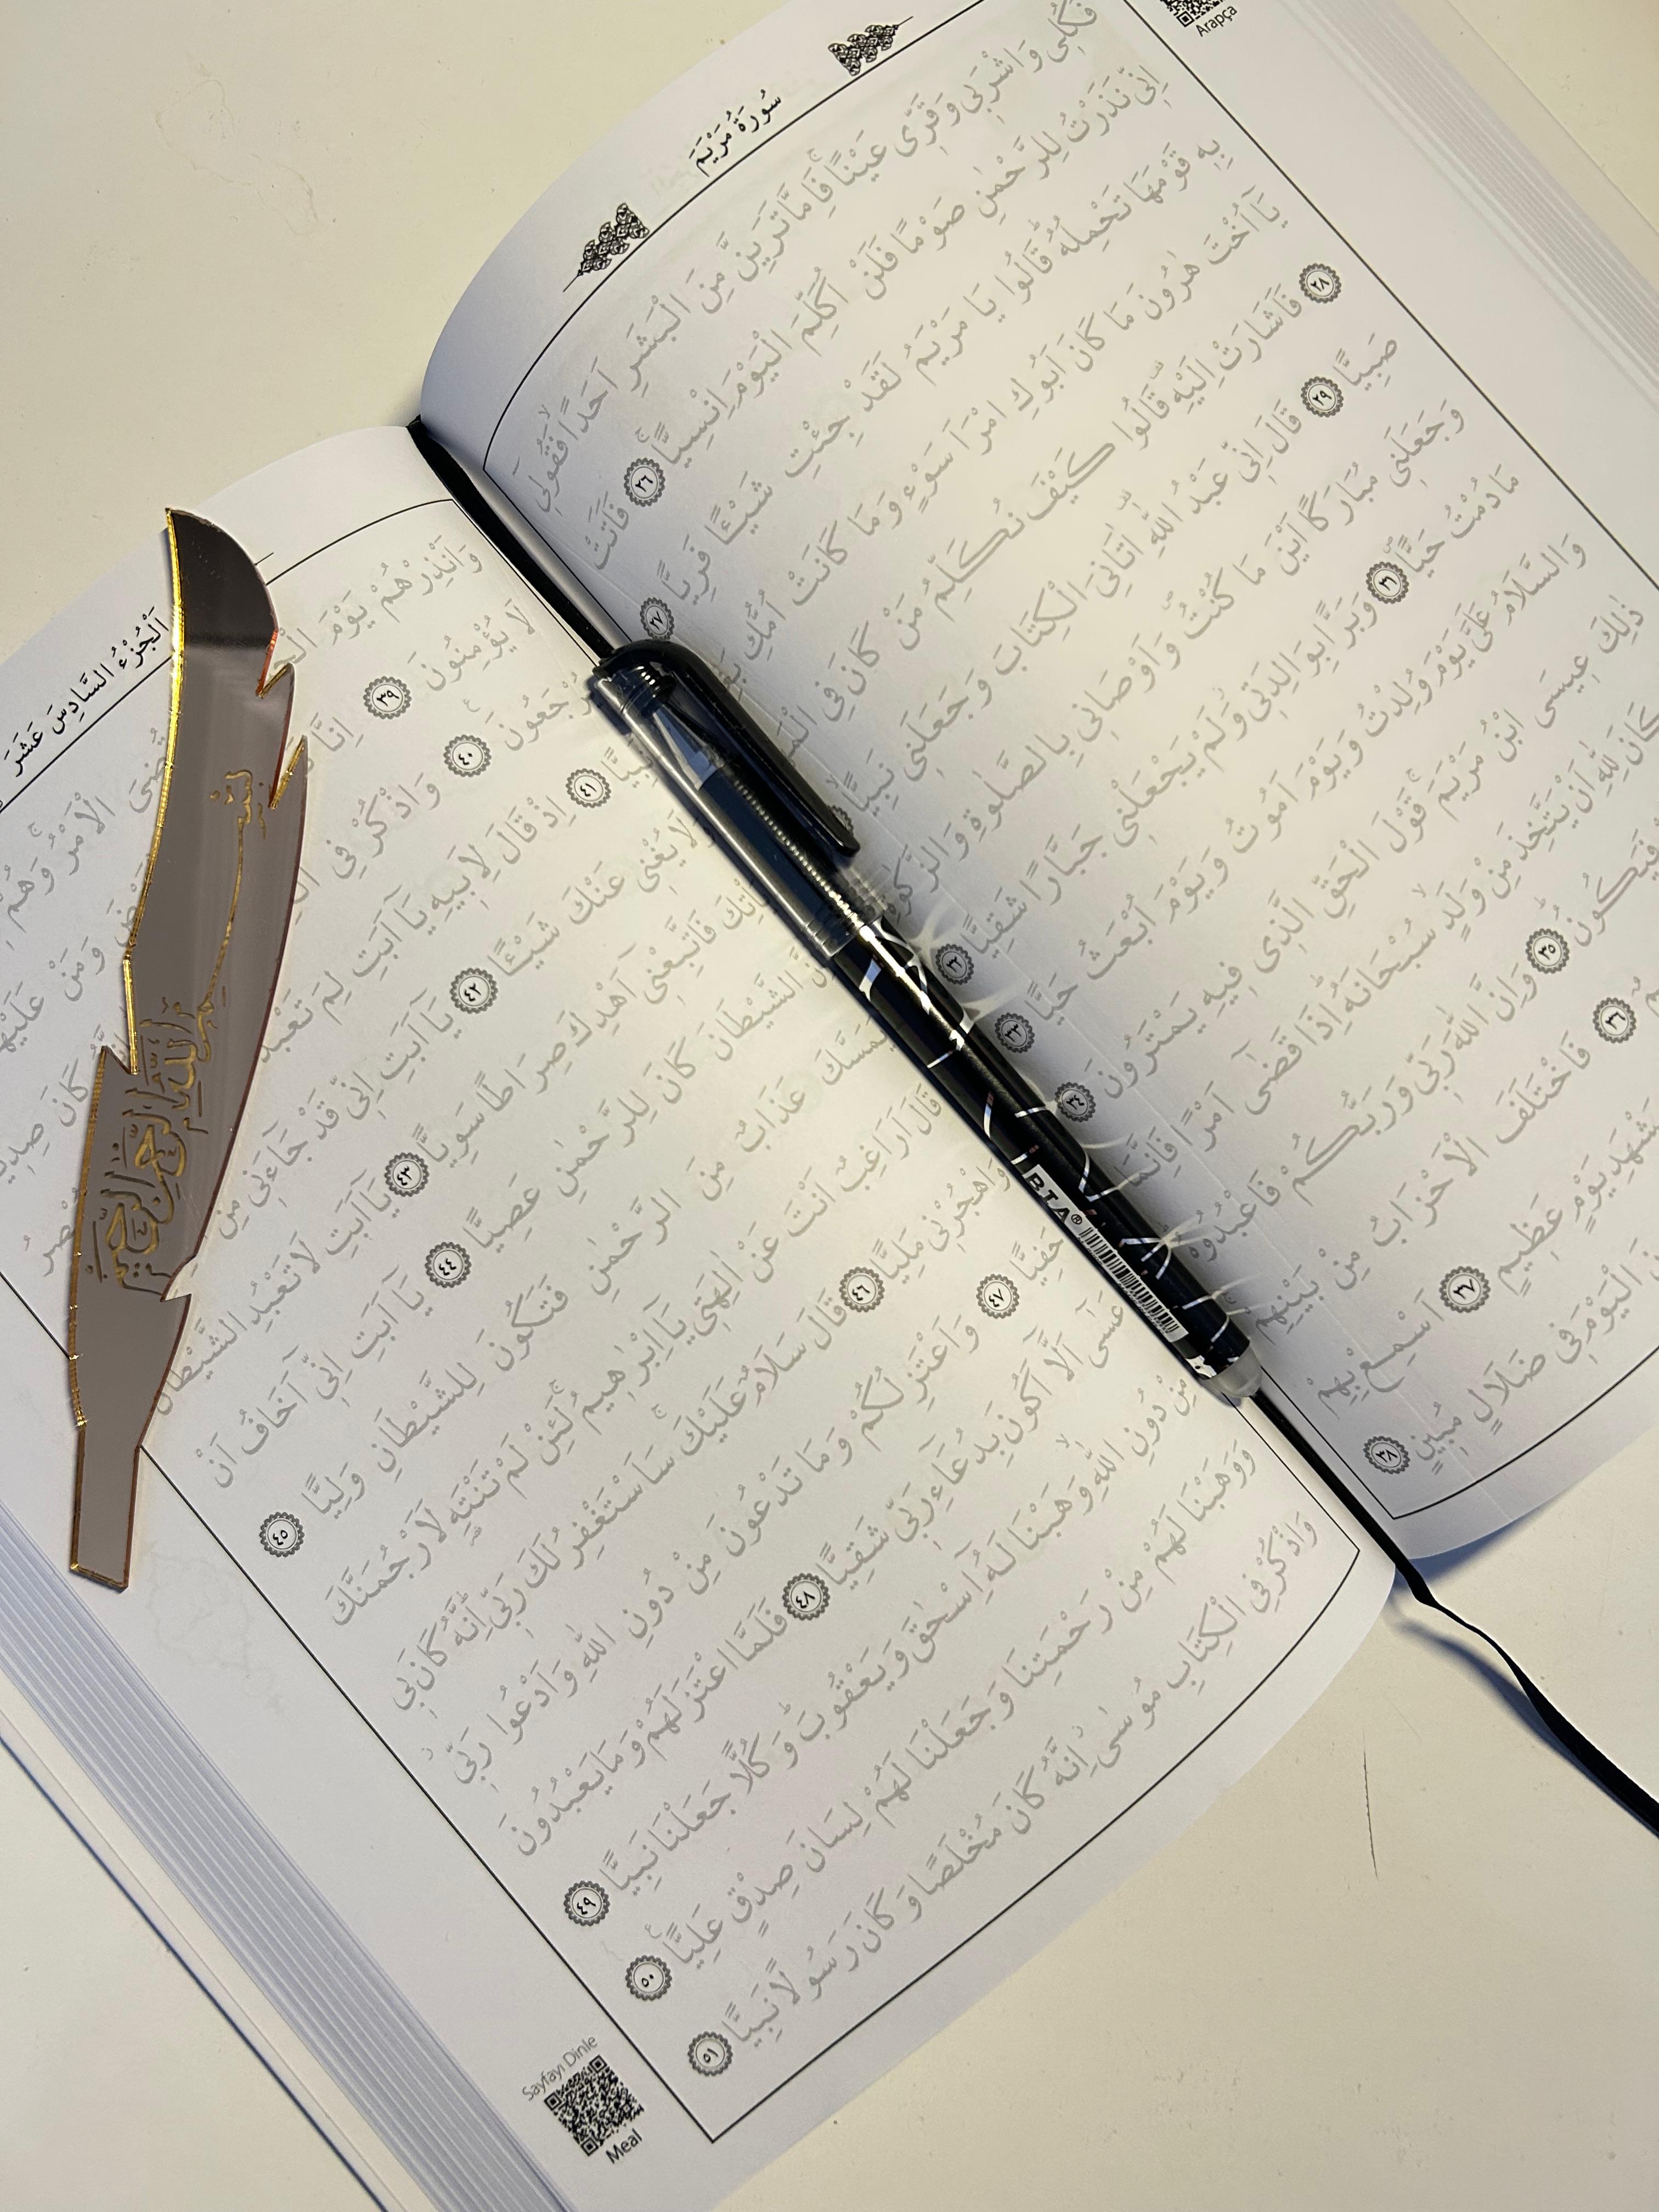 سُورَةُ مَرْيَمَ
Arapça
فَكُلِى وَاشْرَبِى وَقَرِّى عَيْنًاۚ فَاِمَّا تَرَيِنَّ مِنَ الْبَشَرِ اَحَدًاۙ فَقُولِٓى
اِنِّى نَذَرْتُ لِلرَّحْمٰنِ صَوْمًا فَلَنْ اُكَلِّمَ الْيَوْمَ اِنْسِيًّاۚ ٢٦ فَاَتَتْ
بِهِ قَوْمَهَا تَحْمِلُهُۜ قَالُوا يَا مَرْيَمُ لَقَدْ جِئْتِ شَيْـًٔا فَرِيًّا ٢٧
يَٓا اُخْتَ هٰرُونَ مَا كَانَ اَبُوكِ امْرَاَ سَوْءٍ وَمَا كَانَتْ اُمُّكِ
٢٨ فَاَشَارَتْ اِلَيْهِۜ قَالُوا كَيْفَ نُكَلِّمُ مَنْ كَانَ فِى
صَبِيًّا ٢٩ قَالَ اِنِّى عَبْدُ اللّٰهِۜ اٰتَانِىَ الْكِتَابَ وَجَعَلَنِى نَبِيًّا
وَجَعَلَنِى مُبَارَكًا اَيْنَ مَا كُنْتُۖ وَاَوْصَانِى بِالصَّلٰوةِ وَالزَّكٰوةِ
مَا دُمْتُ حَيًّاۖ ٣١ وَبَرًّا بِوَالِدَتِى وَلَمْ يَجْعَلْنِى جَبَّارًا شَقِيًّا ٣٢
وَالسَّلَامُ عَلَىَّ يَوْمَ وُلِدْتُ وَيَوْمَ اَمُوتُ وَيَوْمَ اُبْعَثُ حَيًّا ٣٣
ذٰلِكَ عِيسَى ابْنُ مَرْيَمَۚ قَوْلَ الْحَقِّ الَّذِى فِيهِ يَمْتَرُونَ ٣٤
كَانَ لِلّٰهِ اَنْ يَتَّخِذَ مِنْ وَلَدٍۙ سُبْحَانَهُۜ اِذَا قَضٰٓى اَمْرًا فَاِنَّمَا
فَيَكُونُۜ ٣٥ وَاِنَّ اللّٰهَ رَبِّى وَرَبُّكُمْ فَاعْبُدُوهُۜ
٣٦ فَاخْتَلَفَ الْاَحْزَابُ مِنْ بَيْنِهِمْۚ
مَشْهَدِ يَوْمٍ عَظِيمٍ ٣٧ اَسْمِعْ بِهِمْ
الْيَوْمَ فِى ضَلَالٍ مُبِينٍ ٣٨
اَلْجُزْءُ السَّادِسَ عَشَرَ
وَاَنْذِرْهُمْ يَوْمَ قُضِىَ الْاَمْرُۚ وَهُمْ
لَا يُؤْمِنُونَ ٣٩ اِنَّا وَمَنْ عَلَيْهَا
يُرْجَعُونَ ٤٠ وَاذْكُرْ فِى كَانَ
نَبِيًّا ٤١ اِذْ قَالَ لِاَبِيهِ يَٓا اَبَتِ لِمَ تَعْبُدُ
وَلَا يُغْنِى عَنْكَ شَيْـًٔا ٤٢ يَٓا اَبَتِ اِنِّى قَدْ جَٓاءَنِى مِنَ
يَاْتِكَ فَاتَّبِعْنِٓى اَهْدِكَ صِرَاطًا سَوِيًّا ٤٣ يَٓا اَبَتِ لَا تَعْبُدِ الشَّيْطَانَۜ
الشَّيْطَانَ كَانَ لِلرَّحْمٰنِ عَصِيًّا ٤٤ يَٓا اَبَتِ اِنِّٓى اَخَافُ اَنْ
يَمَسَّكَ عَذَابٌ مِنَ الرَّحْمٰنِ فَتَكُونَ لِلشَّيْطَانِ وَلِيًّا ٤٥
قَالَ اَرَاغِبٌ اَنْتَ عَنْ اٰلِهَتِى يَٓا اِبْرٰهِيمُۚ لَئِنْ لَمْ تَنْتَهِ لَاَرْجُمَنَّكَ
وَاهْجُرْنِى مَلِيًّا ٤٦ قَالَ سَلَامٌ عَلَيْكَۚ سَاَسْتَغْفِرُ لَكَ رَبِّىۜ اِنَّهُ كَانَ بِى
حَفِيًّا ٤٧ وَاَعْتَزِلُكُمْ وَمَا تَدْعُونَ مِنْ دُونِ اللّٰهِ وَاَدْعُوا رَبِّىۘ
عَسٰٓى اَلَّٓا اَكُونَ بِدُعَٓاءِ رَبِّى شَقِيًّا ٤٨ فَلَمَّا اعْتَزَلَهُمْ وَمَا يَعْبُدُونَ
مِنْ دُونِ اللّٰهِۙ وَهَبْنَا لَهُٓ اِسْحٰقَ وَيَعْقُوبَۜ وَكُلًّا جَعَلْنَا نَبِيًّا ٤٩
وَوَهَبْنَا لَهُمْ مِنْ رَحْمَتِنَا وَجَعَلْنَا لَهُمْ لِسَانَ صِدْقٍ عَلِيًّا ٥٠
وَاذْكُرْ فِى الْكِتَابِ مُوسٰىۘ اِنَّهُ كَانَ مُخْلَصًا وَكَانَ رَسُولًا نَبِيًّا ٥١
Sayfayı Dinle
Meal
بِسْمِ اللّٰهِ الرَّحْمٰنِ الرَّحِيمِ
BTA®